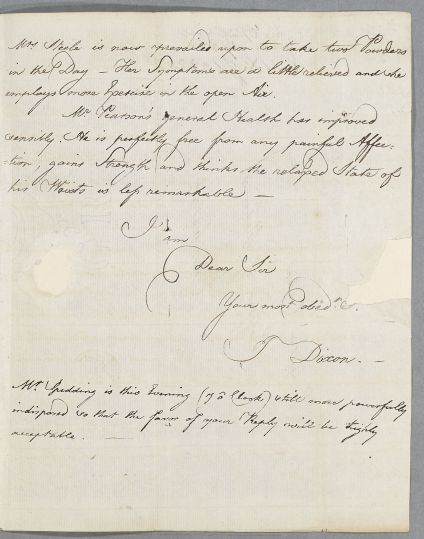 Mrs. Neale is now prevailed upon to take two Powders
in the Day — Her Symptoms are a little relieved and she
employs more Exercise in the open Air.
Mr. Pearson's general Health has improved
sensibly. He is perfectly free from any painful Affec:
:tion, gains Strength and thinks the relaxed State of
his Wrists is less remarkable —
I am
Dear Sir
Your most obedt. &c.
J Dixon. —
Mr. Spedding is this Evening (7 o Clock) still more powerfully
indisposed so that the favor of your Reply will be highly
acceptable. —